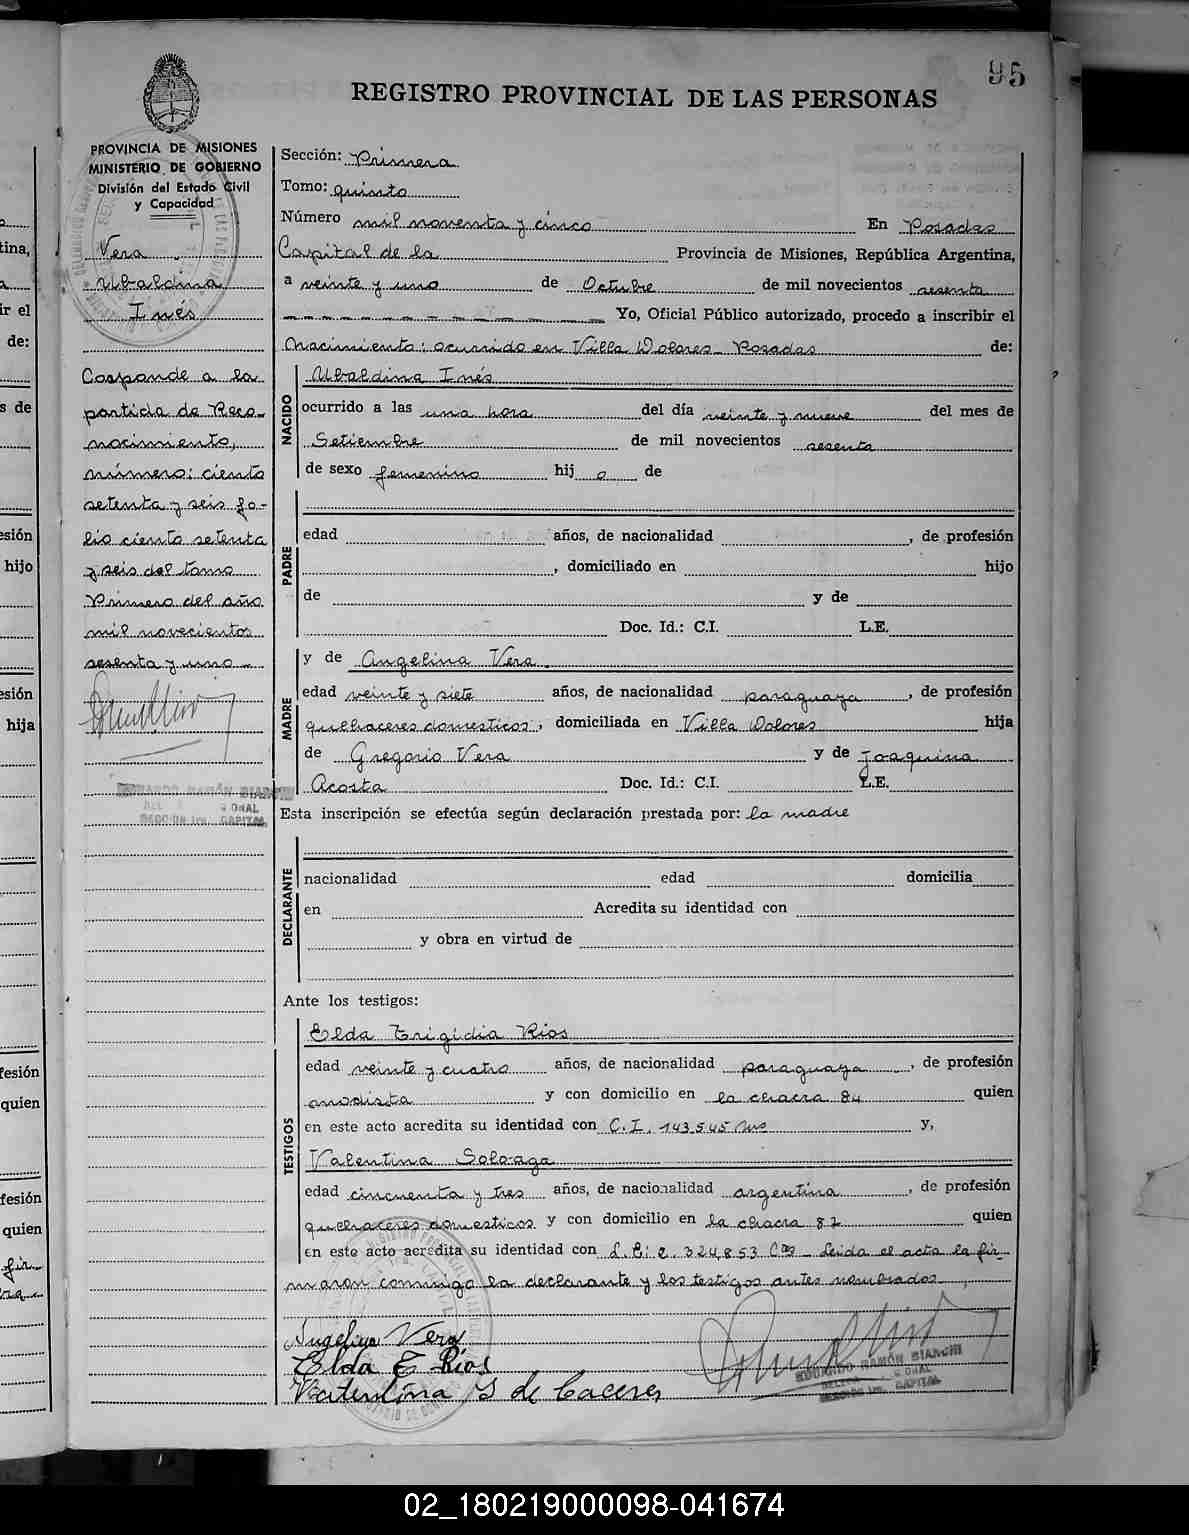 95
REGISTRO PROVINCIAL DE LAS PERSONAS
PROVINCIA DE MISIONES
MINISTERIO DE GOBIERNO
División del Estado Civil
y Capacidad
Vera
Ubaldina
Inés
Cosponde a la
partida de Reco-
nocimiento,
número: ciento
setenta y seis fo-
lio ciento setenta
y seis del tomo
Primero del año
mil novecientos
sesenta y uno -
Sección: Primera
Tomo: quinto
Número mil noventa y cinco En Posadas
Capital de la Provincia de Misiones, República Argentina,
a veinte y uno de Octubre de mil novecientos sesenta
Yo, Oficial Público autorizado, procedo a inscribir el
Nacimiento: ocurrido en Villa Dolores - Posadas de:
NACIDO
Ubaldina Inés
ocurrido a las una hora del día veinte y nueve del mes de
Setiembre de mil novecientos sesenta
de sexo femenino hij a de
PADRE
edad años, de nacionalidad , de profesión
, domiciliado en hijo
de y de
Doc. Id.: C.I. L.E.
MADRE
y de Angelina Vera.
edad veinte y siete años, de nacionalidad paraguaya, de profesión
quehaceres domesticos, domiciliada en Villa Dolores hija
de Gregorio Vera y de Joaquina
Acosta Doc. Id.: C.I. L.E.
Esta inscripción se efectúa según declaración prestada por: la madre
DECLARANTE
nacionalidad edad domicilia
en Acredita su identidad con
y obra en virtud de
Ante los testigos:
TESTIGOS
Elda Erigidia Rios
edad veinte y cuatro años, de nacionalidad paraguaya, de profesión
modista y con domicilio en la chacra 84 quien
en este acto acredita su identidad con C.I. 143.545 y,
Valentina Soloaga
edad cincuenta y tres años, de nacionalidad argentina, de profesión
quehaceres domesticos y con domicilio en la chacra 82 quien
en este acto acredita su identidad con L.C: 2.324.853 Leida el acta la fir-
maron conmigo la declarante y los testigos antes nombrados
Angelina Vera
Elda E Rios
Valentina S de Caceres
EDUARDO RAMÓN BIANCHI
CAPITAL
02_180219000098-041674